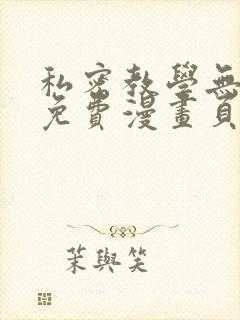 私密教學無
免費漫畫頁
茉與笑